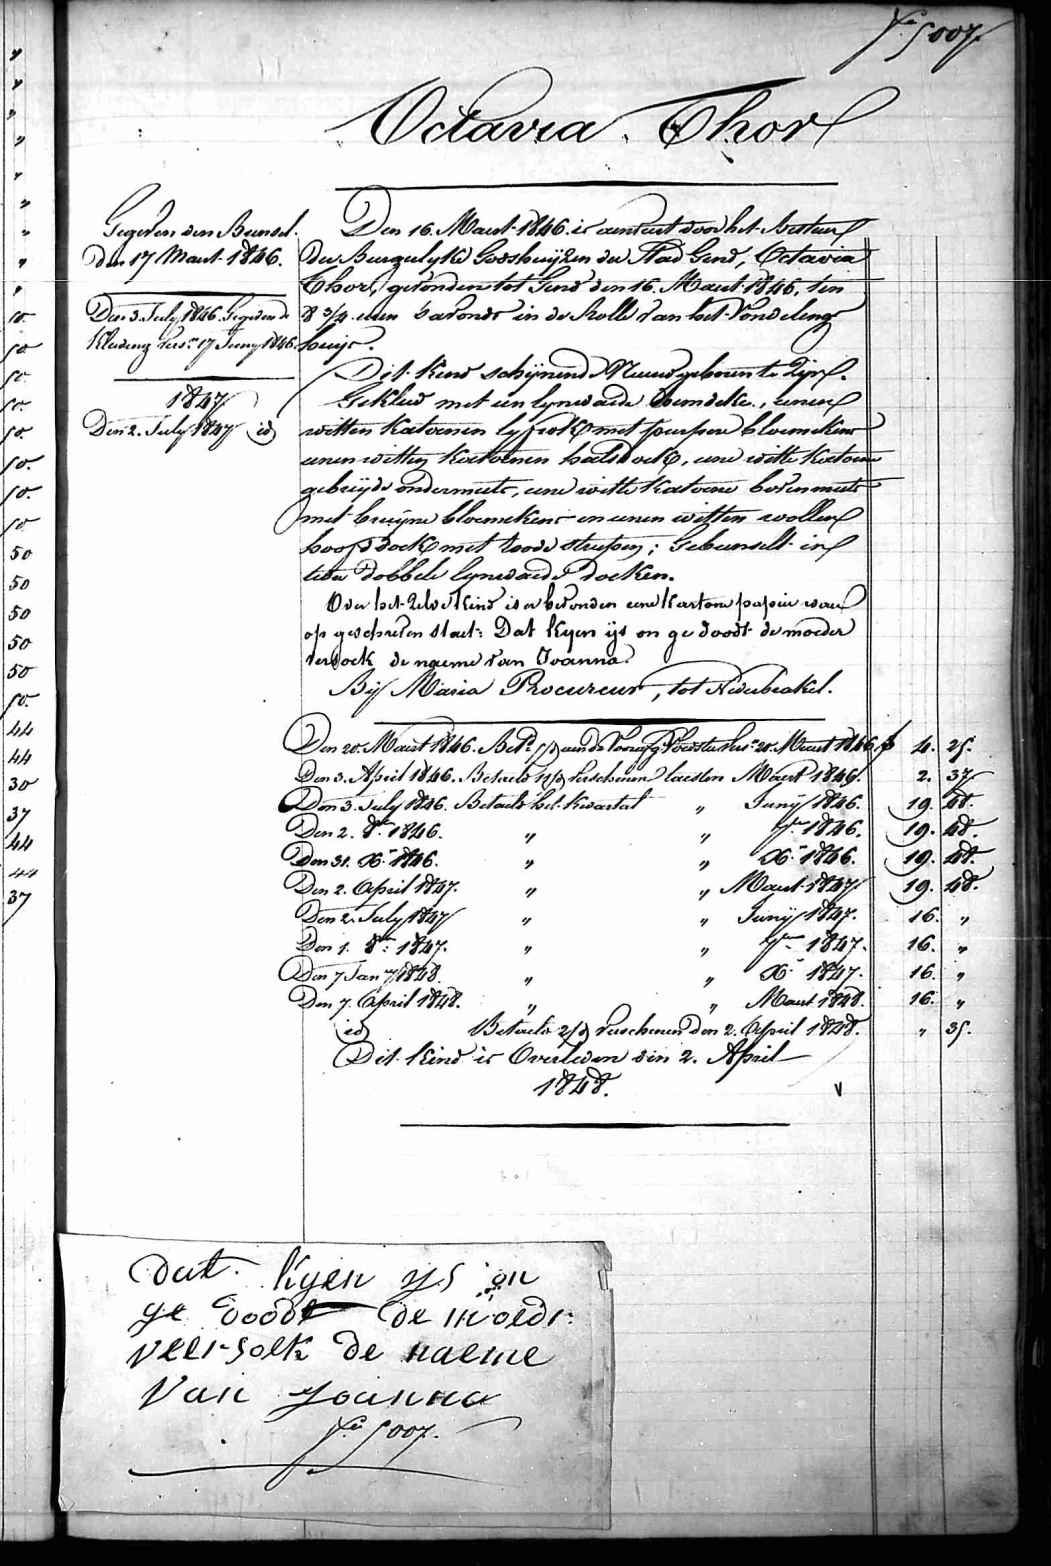 50
50
50
50
50
44
44
30
37
44
44
37
5007.
Octavia Thor
Gegeven den Bunsel.
Den 17 Maert 1846.
Den 3. July 1846. Gegeven de
Kleeding vers. 17 Juny 1846.
1847
Den 2. July 1847 id
Den 16. Maert 1846. is aenveert door het Bestuur
der Burgerlyke Godshuizen der Stad Gend, Octavia
Thor, gevonden tot Gend den 16. Maert 1846, ten
8 3/4 uren 's avonds in de Rolle van het Vondelings
huijs.
Dit Kind schijnende Nieuwgeboren te Zijn.
Gekleed met een lynwaede hemdeke, eenen
witten katoenen lyfrok met purpere bloemekens
eenen witten katoenen halsdoek, eene witte katoene
gebreijde ondermuts, eene witte katoene bovenmuts
met bruyne bloemekens en eenen witten wollen
hoofddoek met roode streepen; Gebunselt in
twee dobbele lynwaede doeken.
Over het zelve Kind is er bevonden eene kartone papier waer
op geschreven staet: Dat kyen ijs on ge doodt de moeder
versoek de naeme van Joanna.
Bij Maria Procureur, tot Nederbrakel.
Den 20. Maert 1846. 20. Maert 1846 f 4. 25.
Den 3. April 1846. Betaeld verschenen laesten Maert 1846. 2. 37
Den 3. July 1846. Betaeld het kwartael „ Junij 1846. 19. 48.
Den 2. 8re 1846. „ „ 7bre 1846. 19. 48.
Den 31. Xr 1846. „ „ Xr 1846. 19. 48.
Den 2. April 1847. „ „ Maert 1847 19. 48.
Den 2. July 1847 „ „ Junij 1847. 16. „
Den 1. 8re 1847. „ „ 7bre 1847. 16. „
Den 7 Jany 1848. „ „ Xr 1847. 16. „
Den 7. April 1848. „ „ Maert 1848. 16. „
id Betaeld 2/d verschenen den 2. April 1848. „ 35.
Dit kind is Overleden den 2. April
1848.
V
Dat kyen ys on
ge doodt de moedr
veersoek de naeme
van Joanna
5007.